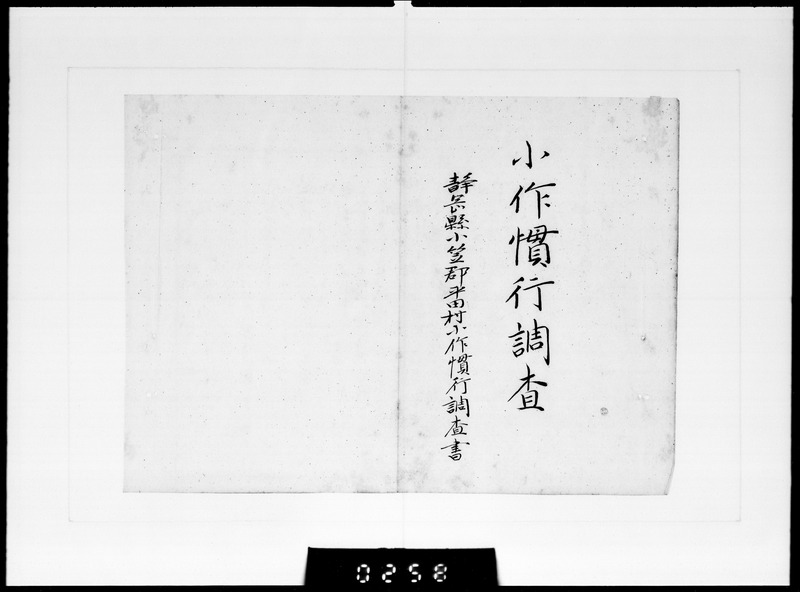 小作慣行調査
静岡縣小笠郡平田村小作慣行調査書
0258